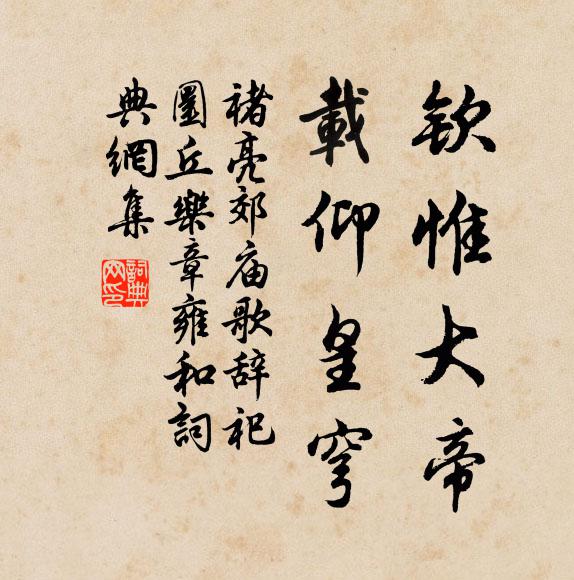 欽惟大帝
載仰皇穹
褚亮郊庙歌辞祀
圜丘樂章雍和詞
典網集
詞典网印